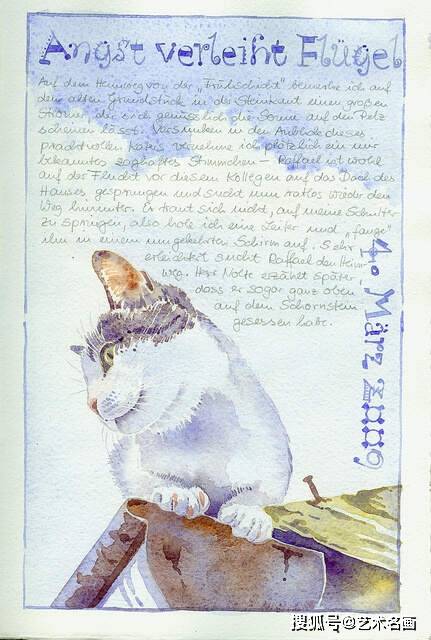 Angst verleiht Flügel
Auf dem Heimweg von der „Frühschicht" bemerke ich auf
dem alten Grundstück in der Steinkaut einen großen
Streuner der sich genüsslich die Sonne auf den Pelz
scheinen lässt. Versunken in den Anblick dieses
prachtvollen Katers vernehme ich plötzlich ein mir
bekanntes Stimmchen – Raffael ist wohl
auf der Flucht vor diesem Kollegen auf das Dach des
Hauses gesprungen und sucht nun ratlos wieder den
Weg hinunter. Er traut sich nicht, auf meine Schulter
zu springen, also hole ich eine Leiter und „fange"
ihn in einem umgekehrten Schirm auf. Sehr
erleichtert sucht Raffael den Heim-
weg. Herr Nolte erzählt später,
dass er sogar ganz oben
auf dem Schornstein
gesessen habe.
März 2009
搜狐号@艺术名画